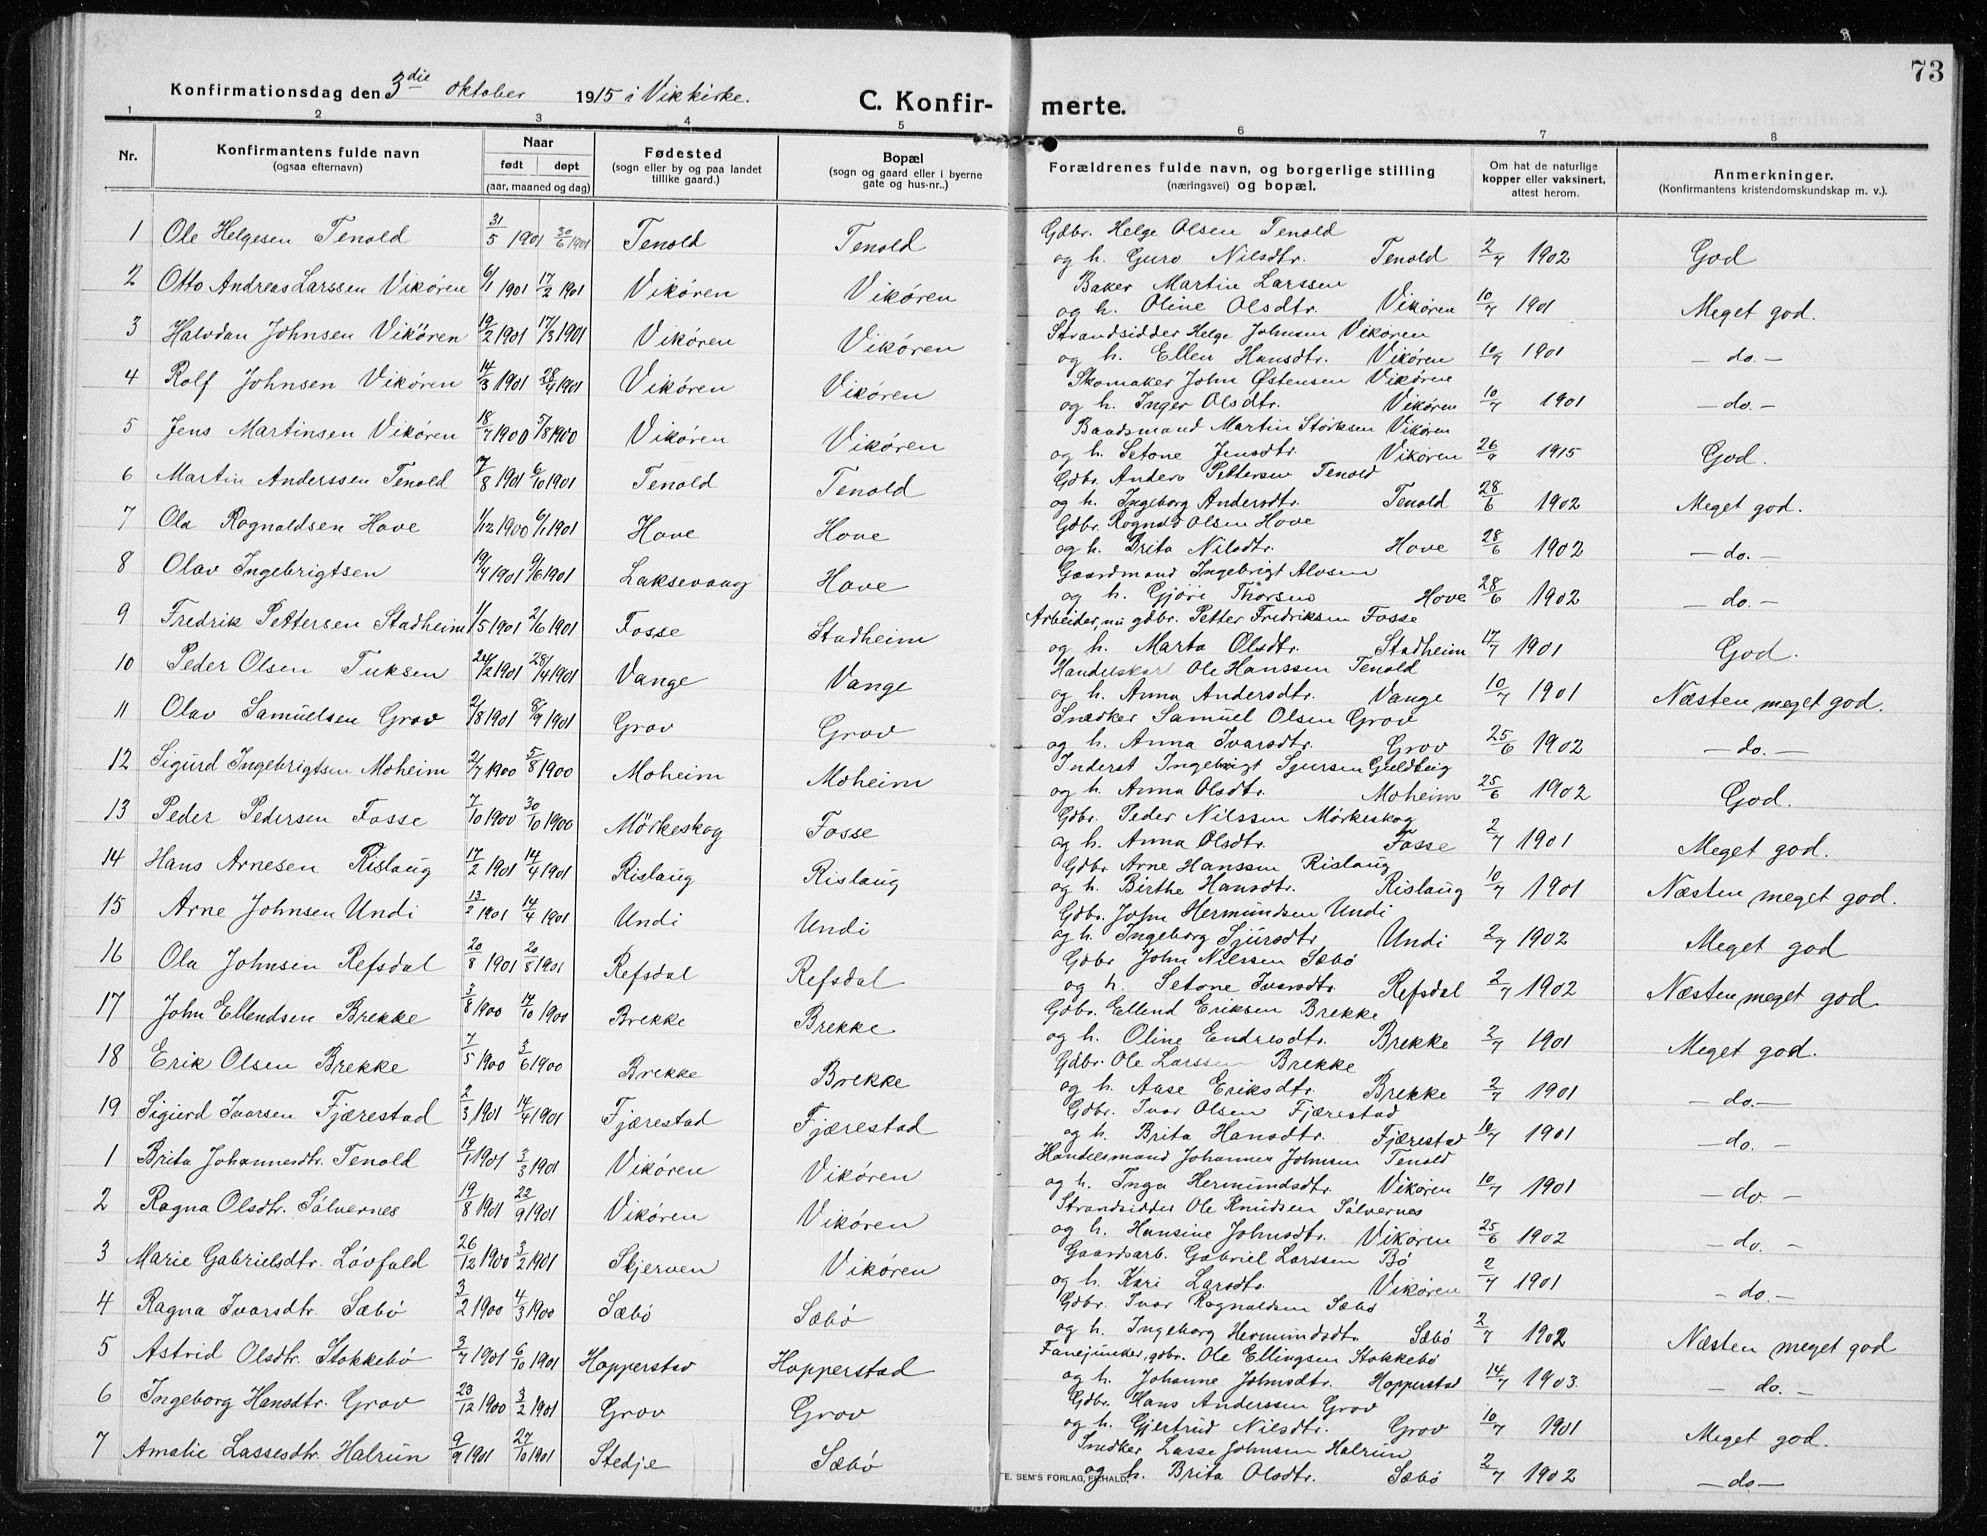 73
Konfirmationsdag den 3die oktober 1915 i Vik kirke. C. Konfir- merte.
1 2 3 4 5 6 7 8
Nr. Konfirmantens fulde navn (ogsaa efternavn) Naar født døpt (aar, maaned og dag) Fødested (sogn eller by og paa landet tillike gaard.) Bopæl (sogn og gaard eller i byerne gate og hus-nr..) Forældrenes fulde navn, og borgerlige stilling (næringsvei) og bopæl. Om hat de naturlige kopper eller vaksinert, attest herom. Anmerkninger. (Konfirmantens kristendomskundskap m. v.).
1 Ole Helgesen Tenold 31/5 1901 30/6 1901 Tenold Tenold Gdbr. Helge Olsen Tenold
og h. Guro Nilsdtr. Tenold 2/7 1902 God
2 Otto Andreas Larssen Vikøren 6/1 1901 17/2 1901 Vikøren Vikøren Baker Martin Larssen
og h. Oline Olsdtr. Vikøren 10/7 1901 Meget god.
3 Halvdan Johnsen Vikøren 19/2 1901 17/3 1901 Vikøren Vikøren Strandsidder Helge Johnsen Vikøren
og h. Ellen Hansdtr. Vikøren 10/9 1901 - do. -
4 Rolf Johnsen Vikøren 14/3 1901 28/4 1901 Vikøren Vikøren Skomaker John Østensen Vikøren
og h. Inger Olsdtr. Vikøren 10/7 1901 - do. -
5 Jens Martinsen Vikøren 18/7 1900 5/8 1900 Vikøren Vikøren Baadsmand Martin Storksen Vikøren
og h. Setone Jensdtr. Vikøren 26/9 1915 God.
6 Martin Anderssen Tenold 7/8 1901 6/10 1901 Tenold Tenold Gdbr. Anders Pettersen Tenold
og h. Ingeborg Andersdtr. Tenold 28/6 1902 Meget god.
7 Ola Rognaldsen Hove 1/12 1900 6/1 1901 Hove Hove Gdbr. Rognald Olsen Hove
og h. Brita Nilsdtr. Hove 28/6 1902 - do. -
8 Olav Ingebrigtsen 19/4 1901 9/6 1901 Laksevaag Hove Gaardmand Ingebrigt Alvsen
og h. Gjøri Thorsen Hove 28/6 1902 - do. -
9 Fredrik Pettersen Stadheim 1/5 1901 2/6 1901 Fosse Stadheim Arbeider, nu gdbr. Petter Fredriksen Fosse
og h. Marta Olsdtr. Stadheim 17/7 1901 God.
10 Peder Olsen Tuksen 24/2 1901 28/4 1901 Vange Vange Handelskarl Ole Hanssen Tenold
og h. Anna Andersdtr. Vange 10/7 1901 Næsten meget god.
11 Olav Samuelsen Grov 2/8 1901 8/9 1901 Grov Grov Snedker Samuel Olsen Grov
og h. Anna Ivarsdtr. Grov 25/6 1902 - do. -
12 Sigurd Ingebrigtsen Moheim 2/7 1900 5/8 1900 Moheim Moheim Inderst Ingebrigt Sjursen Guldteig
og h. Anna Olsdtr. Moheim 25/6 1902 God.
13 Peder Pedersen Fosse 7/10 1900 30/10 1900 Mörkeskog Fosse Gdbr. Peder Nilssen Mörkeskog
og h. Anna Olsdtr. Fosse 2/7 1901 Meget god.
14 Hans Arnesen Rislaug 17/2 1901 14/4 1901 Rislaug Rislaug Gdbr. Arne Hanssen Rislaug
og h. Birthe Hansdtr. Rislaug 10/7 1901 Næsten meget god.
15 Arne Johnsen Undi 13/2 1901 14/4 1901 Undi Undi Gdbr. John Hermundsen Undi
og h. Ingeborg Sjursdtr Undi 2/7 1902 Meget god
16 Ola Johnsen Refsdal 20/8 1901 20/8 1901 Refsdal Refsdal Gdbr John Nilssen Sæbø
og h. Setone Ivarsdtr. Refsdal 2/7 1902 Næsten meget god.
17 John Ellendsen Brekke 3/8 1900 14/10 1900 Brekke Brekke Gdbr. Ellend Eriksen Brekke
og h. Oline Endresdtr. Brekke 2/7 1901 Meget god.
18 Erik Olsen Brekke 7/5 1900 3/6 1900 Brekke Brekke Gdbr. Ole Larssen Brekke
og h. Aase Eriksdtr. Brekke 2/7 1901 - do. -
19 Sigurd Ivarsen Fjærestad 2/3 1901 14/4 1901 Fjærestad Fjærestad Gdbr. Ivar Olsen Fjærestad
og h. Brita Hansdtr. Fjærestad 10/7 1901 - do.
1 Brita Johannesdtr. Tenold 19/1 1901 3/3 1901 Vikøren Vikøren Handelsmand Johannes Johnsen Tenold
og h. Inga Hermundsdtr. Vikøren 10/7 1901 - do. -
2 Ragna Olsdtr. Sålvernes 19/8 1901 22/9 1901 Vikøren Vikøren Strandsidder Ole Knudsen Sålvernes
og h. Hansine Johnsdtr. Vikøren 25/6 1902 - do. -
3 Marie Gabrielsdtr. Lövfald 26/12 1900 3/2 1901 Skjerven Vikøren Gaardsarb. Gabriel Larssen Bø
og h. Kari Larsdtr. Vikøren 2/7 1901 - do. -
4 Ragna Ivarsdtr. Sæbø 3/2 1900 4/3 1900 Sæbø Sæbø Gdbr. Ivar Rognaldsen Sæbø
og h. Ingeborg Hermundsdtr. Sæbø 2/7 1902 Næsten meget god
5 Astrid Olsdtr. Stokkebø 3/7 1901 6/10 1901 Hopperstad Hopperstad Fanejunker, gdbr. Ole Ellingsen Stokkebø
og h. Johanne Johnsdtr. Hopperstad 14/7 1903. - do. -
6 Ingeborg Hansdtr. Grov 23/12 1900 3/2 1901 Grov Grov Gdbr. Hans Anderssen Grov
og h. Gjertrud Nilsdtr. Grov 10/7 1901 Meget god.
7 Amalie Lassesdtr. Halrun 9/9 1901 27/10 1901 Stedje Sæbø Snedker Lasse Johnsen Halrun
og h. Brita Olsdtr. Sæbø 2/7 1902 - do -
E. SEM'S FORLAG, FR.HALD.